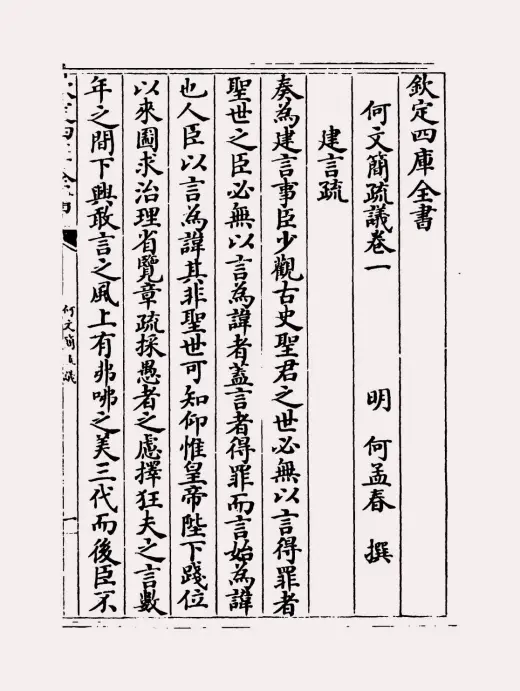 欽定四庫全書
何文簡疏議卷一
明 何孟春 撰
建言疏
奏為建言事臣少觀古史聖君之世必無以言得罪者
聖世之臣必無以言為諱者蓋言者得罪而言始為諱
也人臣以言為諱其非聖世可知仰惟皇帝陛下踐位
以來圖求治理省覽章疏採愚者之慮擇狂夫之言數
年之間下興敢言之風上有弗咈之美三代而後臣不
何文簡疏議
一